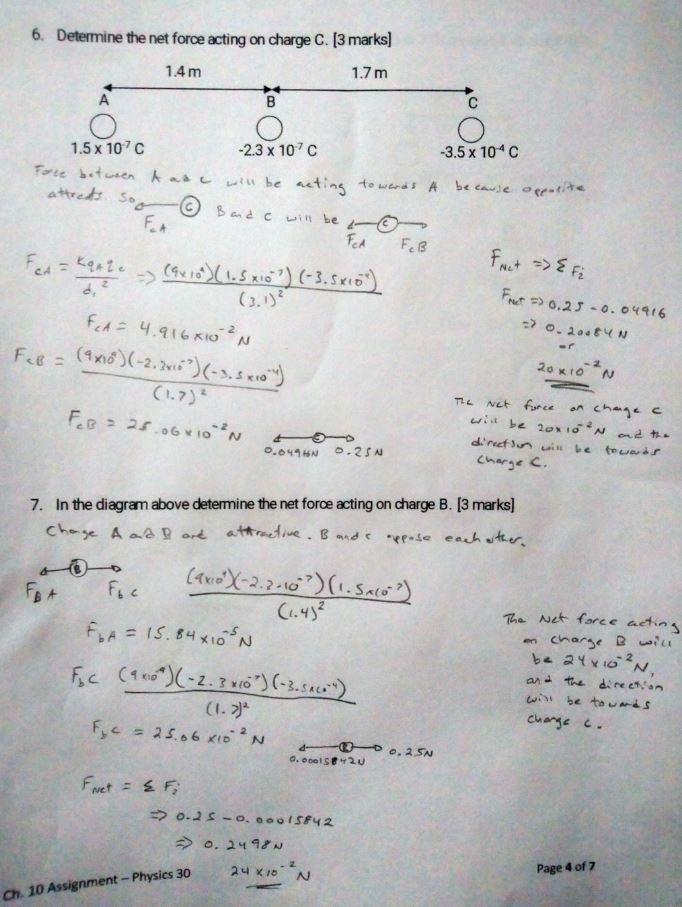 6. Determine the net force acting on charge C. [3 marks]
1.4 m 1.7 m
A B C
1.5 x 10⁻⁷ C -2.3 x 10⁻⁷ C -3.5 x 10⁻⁴ C
Force between A and C will be acting towards A because opposite
attracts so C B and C will be C
FcA FcA FcB
FcA = KqAqc / d₁² => (9x10⁹)(1.5x10⁻⁷)(-3.5x10⁻⁴) / (3.1)²
FcA = 4.916x10⁻² N
FcB = (9x10⁹)(-2.3x10⁻⁷)(-3.5x10⁻⁴) / (1.7)²
FcB = 25.06x10⁻² N
C
0.0491N 0.25N
FNet => Σ Fi
FNet => 0.25 - 0.04916
=> 0.20084 N
or
20x10⁻² N
The Net force on charge C
will be 20x10⁻² N and the
direction will be towards
charge C.
7. In the diagram above determine the net force acting on charge B. [3 marks]
Charge A and B are attractive. B and C oppose each other.
B
FBA Fbc
(9x10⁹)(-2.3x10⁻⁷)(1.5x10⁻⁷) / (1.4)²
FbA = 15.84x10⁻⁵ N
Fbc (9x10⁹)(-2.3x10⁻⁷)(-3.5x10⁻⁴) / (1.7)²
Fbc = 25.06x10⁻² N
B 0.25N
FNet = Σ Fi
=> 0.25 - 0.00015842
=> 0.2498N
24x10⁻² N
The Net force acting
on charge B will
be 24x10⁻² N,
and the direction
will be towards
charge C.
Ch. 10 Assignment – Physics 30
Page 4 of 7